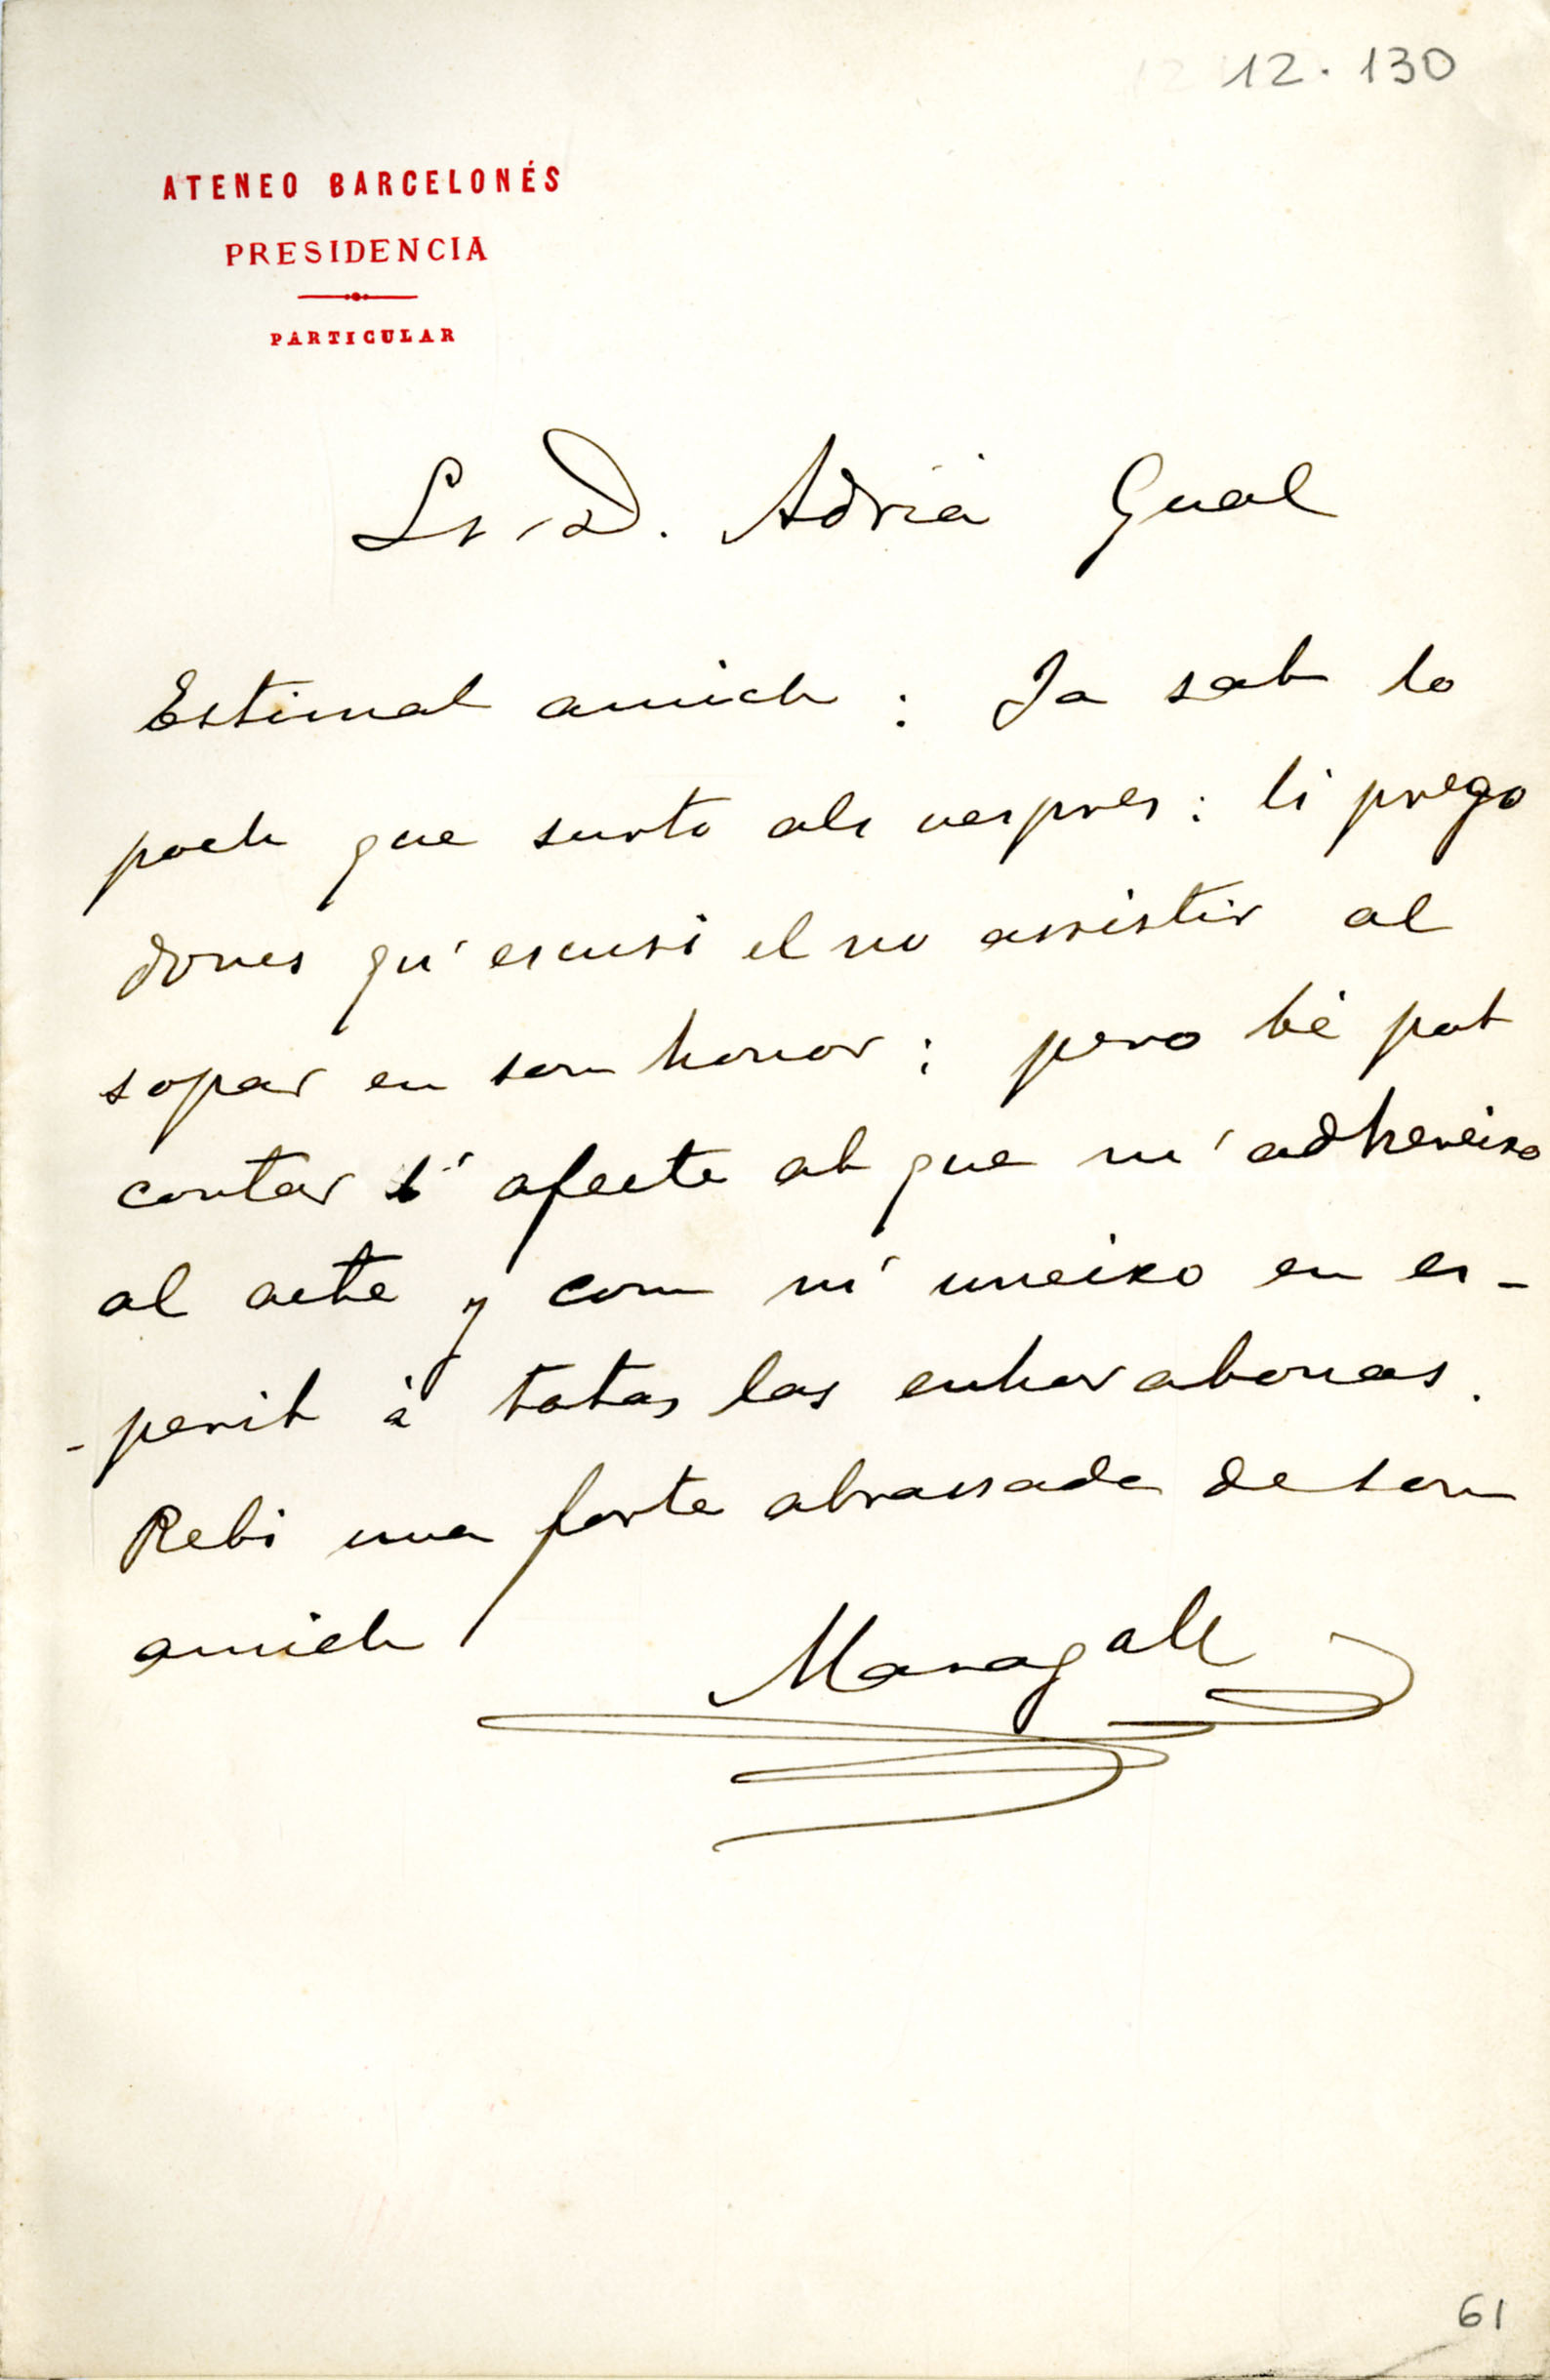 12.130
ATENEO BARCELONÉS
PRESIDENCIA
PARTICULAR
Sr. D. Adrià Gual
Estimat amich: Ja sab lo
poch que surto als vespres: li prego
doncs qu'escusi el no assistir al
sopar en son honor; pero bé pot
contar l'afecte ab que m'adhereixo
al acte y com m'uneixo en es-
-perit à totas las enhorabonas.
Rebi una forta abrassada de son
amich
Maragall
61